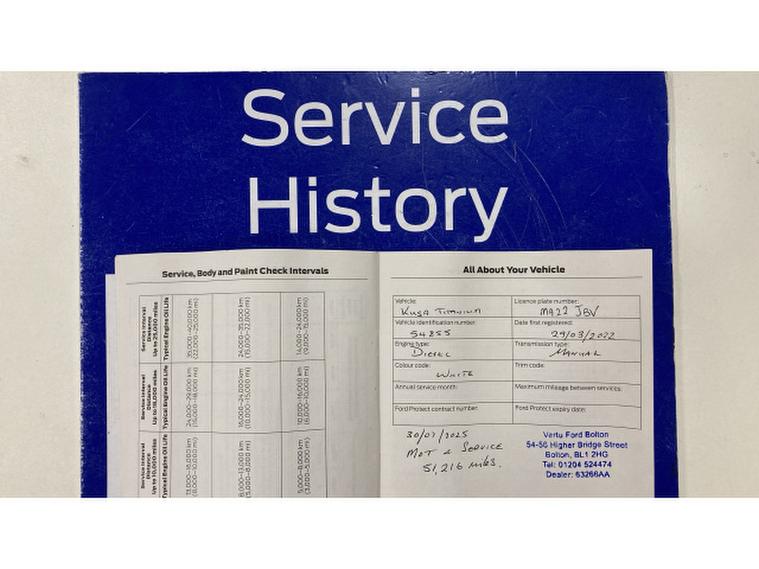 Service
History
Service, Body and Paint Check Intervals
Service Interval
Distance
Up to 25,000 miles
Typical Engine Oil Life
35,000–40,000 km
(22,000–25,000 mi)
24,000–35,000 km
(15,000–22,000 mi)
14,000–24,000 km
(9,000–15,000 mi)
Service Interval
Distance
Up to 18,000 miles
Typical Engine Oil Life
24,000–29,000 km
(15,000–18,000 mi)
16,000–24,000 km
(10,000–15,000 mi)
10,000–16,000 km
(6,000–10,000 mi)
Service Interval
Distance
Up to 10,000 miles
Typical Engine Oil Life
13,000–16,000 km
(8,000–10,000 mi)
8,000–13,000 km
(5,000–8,000 mi)
5,000–8,000 km
(3,000–5,000 mi)
All About Your Vehicle
Vehicle: Kuga Titanium
Licence plate number: MA22 JBV
Vehicle identification number: 54855
Date first registered: 29/03/2022
Engine type: Diesel
Transmission type: Manual
Colour code: White
Trim code:
Annual service month:
Maximum mileage between services:
Ford Protect contract number:
Ford Protect expiry date:
MOT & Service
51,216 miles.
Vertu Ford Bolton
54-56 Higher Bridge Street
Bolton, BL1 2HG
Tel: 01204 524474
Dealer: 63266AA